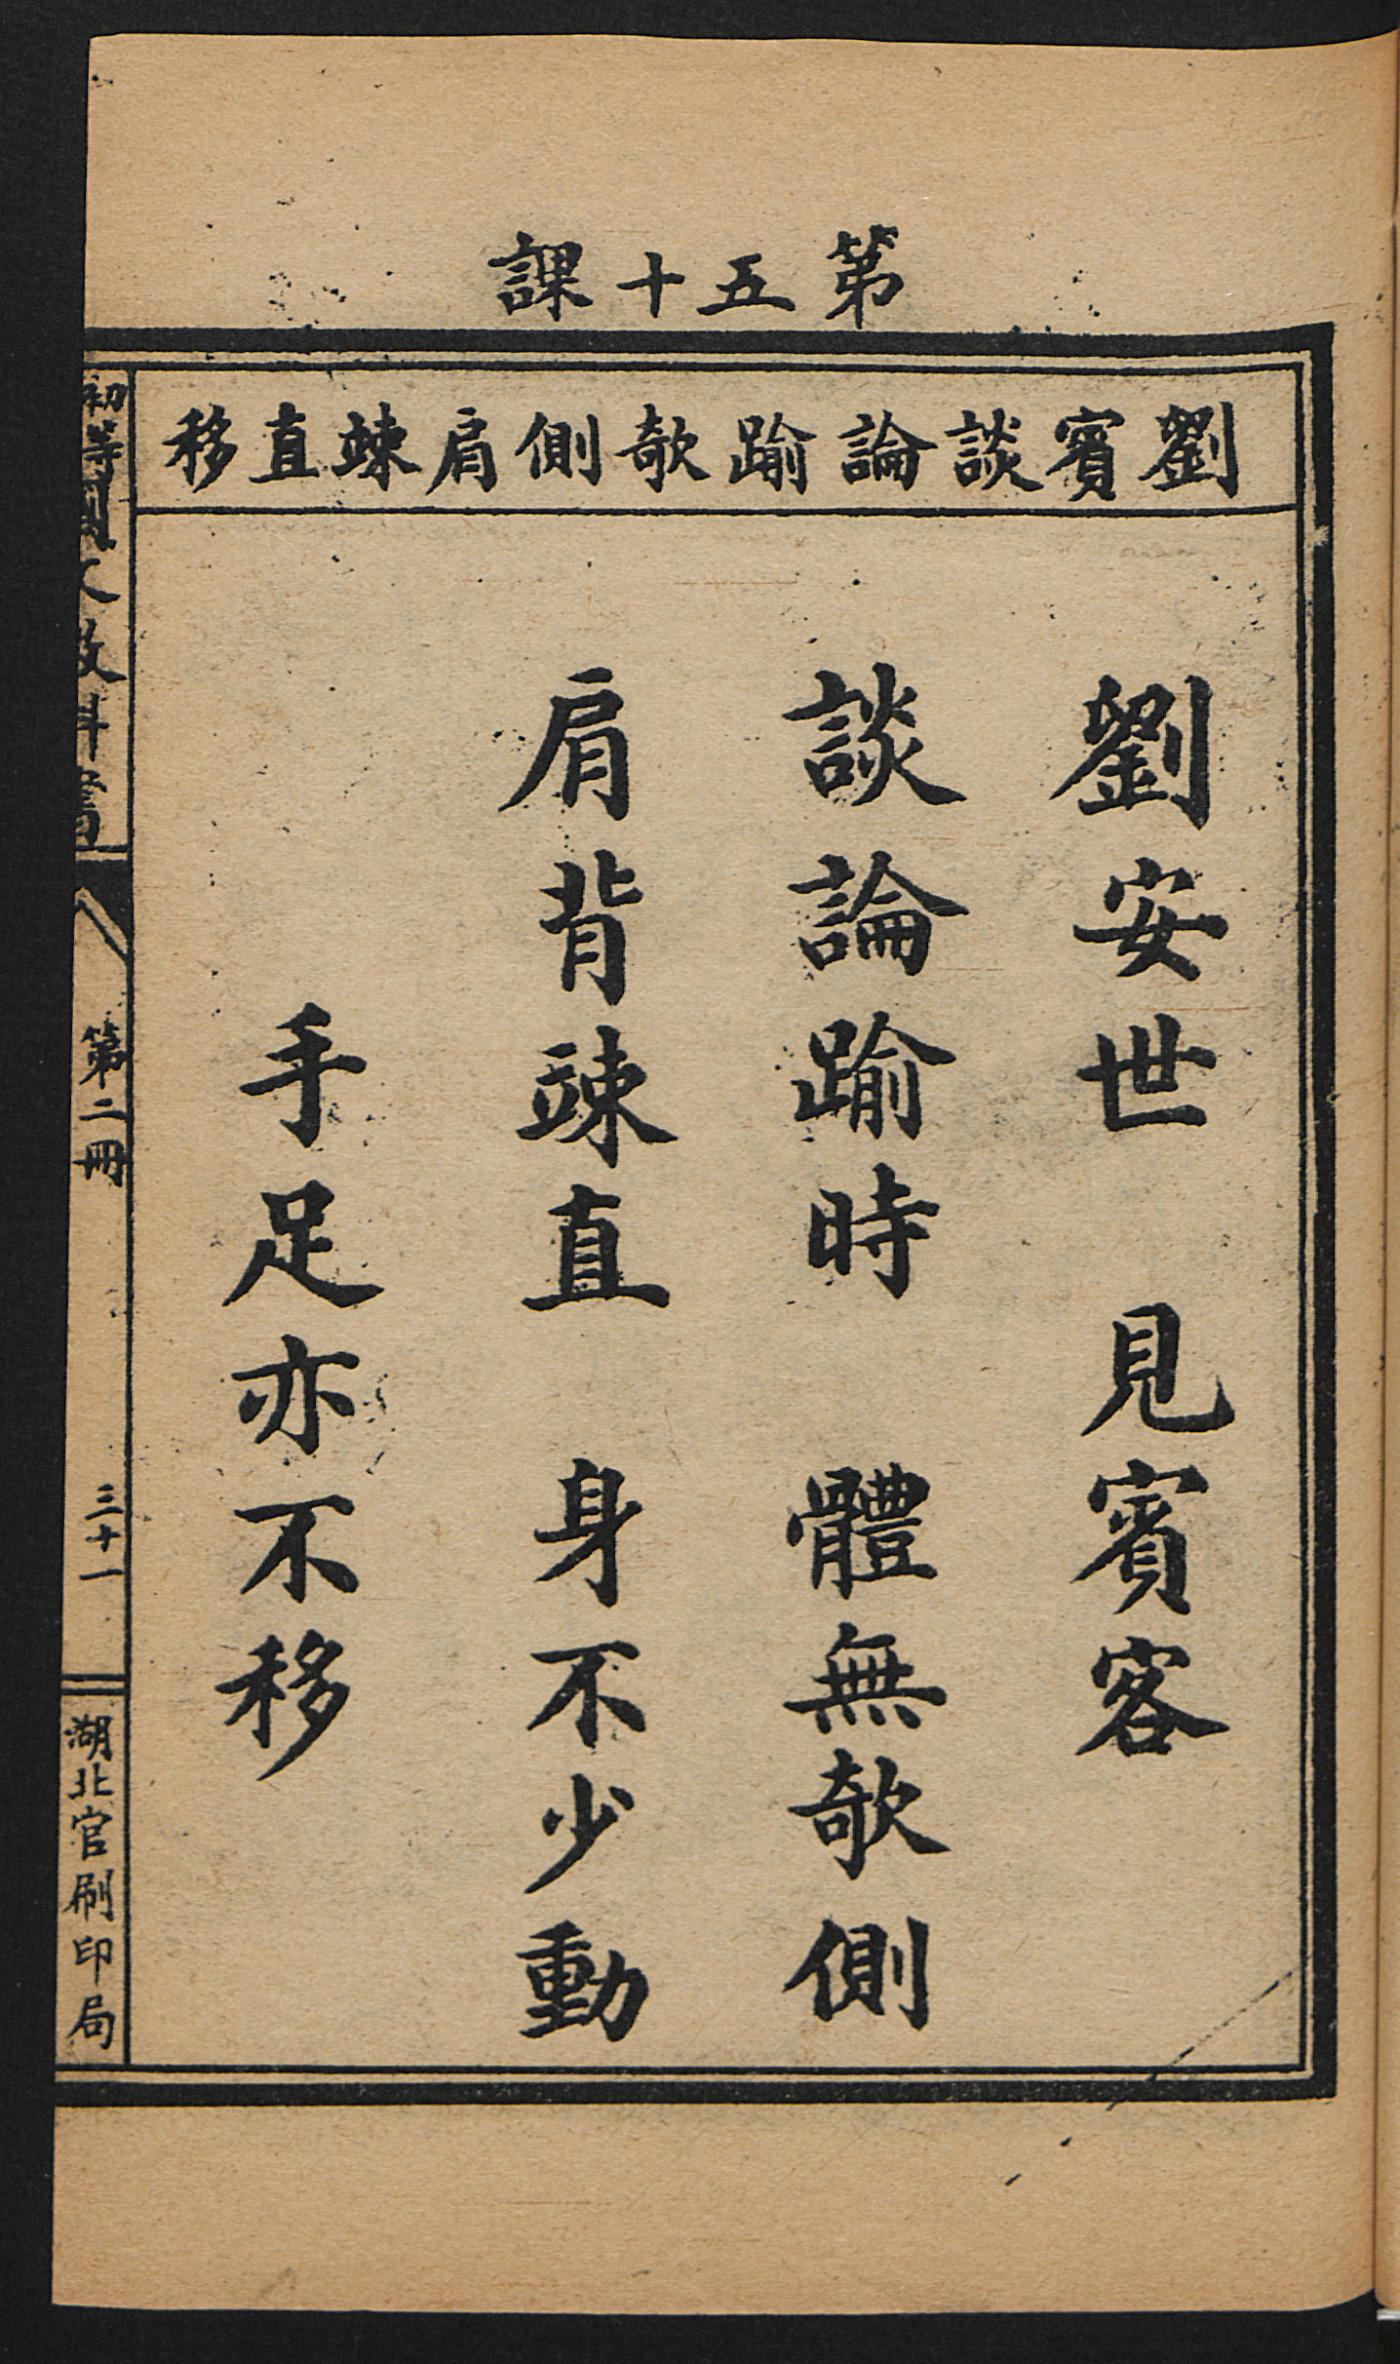 第五十課
劉賓談論踰欹側肩竦直移
劉安世　見賓客
談論踰時　體無欹側
肩背竦直　身不少動
手足亦不移
初等國文教科書
第二冊
三十一
湖北官刷印局